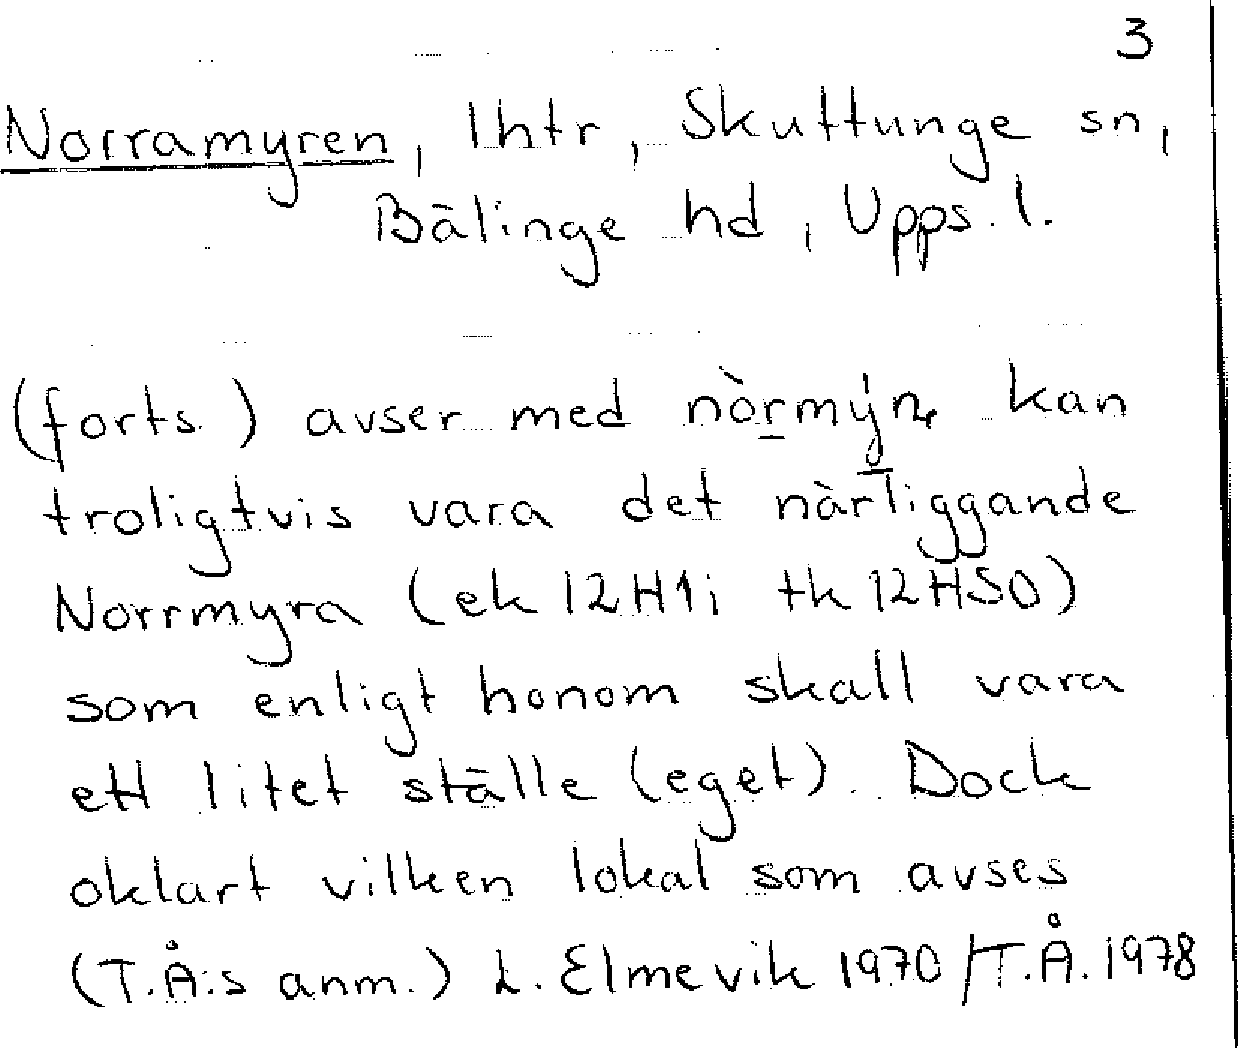 3
Norramyren, lhtr, Skuttunge sn,
Bälinge hd, Upps. l.
(forts.) avser med kan
troligtvis vara det närliggande
Norrmyra (ek 12H1i tk 12HSO)
som enligt honom skall vara
ett litet ställe (eget). Dock
oklart vilken lokal som avses
(T.Å:s anm.) L. Elmevik 1970/T.Å. 1978